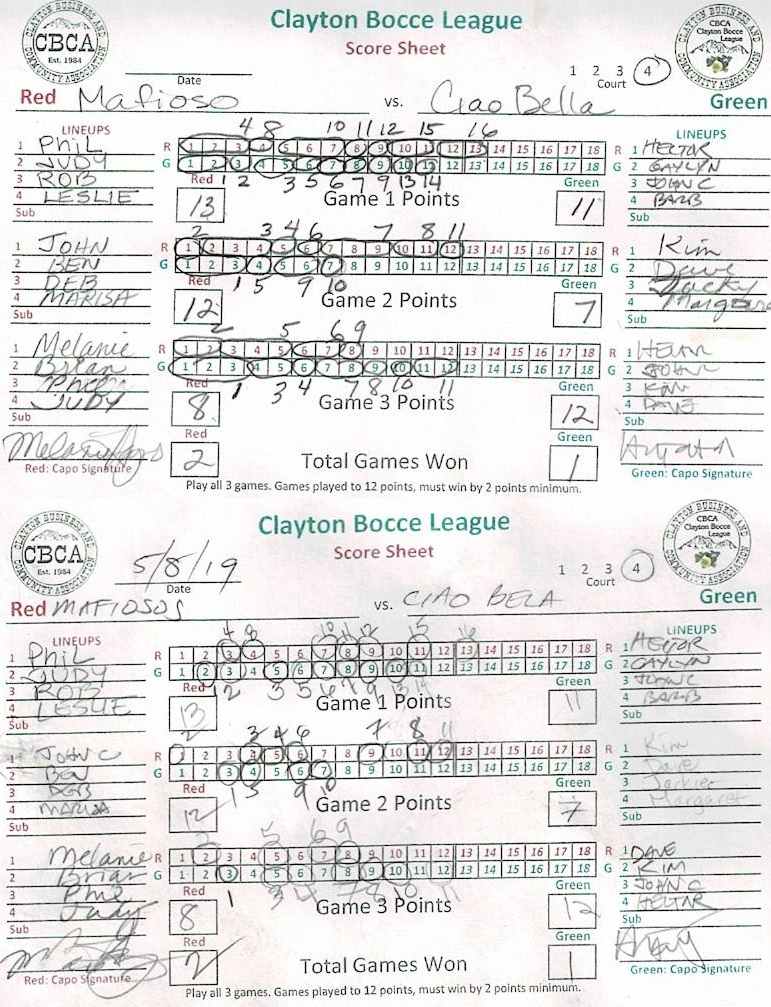 Clayton Bocce League
Score Sheet
CLAYTON BUSINESS AND COMMUNITY ASSOCIATION
CBCA
Est. 1984
CBCA
Clayton Bocce
League
Date
1 2 3 4
Court
Red Mafioso vs. Ciao Bella Green
LINEUPS
LINEUPS
4 8 10 11 12 15 16
1 PHIL R 1 2 3 4 5 6 7 8 9 10 11 12 13 14 15 16 17 18 R 1 HECTOR
2 JUDY G 1 2 3 4 5 6 7 8 9 10 11 12 13 14 15 16 17 18 G 2 GAYLYN
3 ROB Red 1 2 3 5 6 7 9 13 14 Green 3 JOHN C
4 LESLIE 13 Game 1 Points 11 4 BARB
Sub
Sub
2 3 4 6 7 8 11
1 JOHN R 1 2 3 4 5 6 7 8 9 10 11 12 13 14 15 16 17 18 R 1 Kim
2 BEN G 1 2 3 4 5 6 7 8 9 10 11 12 13 14 15 16 17 18 G 2 Dave
3 DEB Red 1 5 9 10 Green 3
4 MARISA 12 Game 2 Points 7 4
Sub
Sub
2 5 6 9
1 Melanie R 1 2 3 4 5 6 7 8 9 10 11 12 13 14 15 16 17 18 R 1
2 Brian G 1 2 3 4 5 6 7 8 9 10 11 12 13 14 15 16 17 18 G 2 JOHN C
3 Red 1 3 4 7 8 10 11 Green 3 KIM
4 JUDY 8 Game 3 Points 12 4 DAVE
Sub
Sub
Red Green
2 Total Games Won 1
Red: Capo Signature
Green: Capo Signature
Play all 3 games. Games played to 12 points, must win by 2 points minimum.
Clayton Bocce League
Score Sheet
CLAYTON BUSINESS AND COMMUNITY ASSOCIATION
CBCA
Est. 1984
CBCA
Clayton Bocce
League
5/8/19
Date
1 2 3 4
Court
Red MAFIOSOS vs. CIAO BELA Green
LINEUPS
LINEUPS
4 8 10 11 12 15 16
1 PHIL R 1 2 3 4 5 6 7 8 9 10 11 12 13 14 15 16 17 18 R 1 HECTOR
2 JUDY G 1 2 3 4 5 6 7 8 9 10 11 12 13 14 15 16 17 18 G 2 GAYLYN
3 ROB Red 1 2 3 5 6 7 9 13 14 Green 3 JOHN C
4 LESLIE 13 Game 1 Points 11 4 BARB
Sub
Sub
2 3 4 6 7 8 11
1 JOHN C R 1 2 3 4 5 6 7 8 9 10 11 12 13 14 15 16 17 18 R 1 Kim
2 BEN G 1 2 3 4 5 6 7 8 9 10 11 12 13 14 15 16 17 18 G 2 Dave
3 DEB Red 1 5 9 10 Green 3 Jackie
4 MARISA 12 Game 2 Points 7 4 Margaret
Sub
Sub
2 5 6 9
1 Melanie R 1 2 3 4 5 6 7 8 9 10 11 12 13 14 15 16 17 18 R 1 DAVE
2 Brian G 1 2 3 4 5 6 7 8 9 10 11 12 13 14 15 16 17 18 G 2 KIM
3 Phil Red 1 3 4 7 8 10 11 Green 3 JOHN C
4 Judy 8 Game 3 Points 12 4 HECTOR
Sub
Sub
Red Green
2 Total Games Won 1
Red: Capo Signature
Green: Capo Signature
Play all 3 games. Games played to 12 points, must win by 2 points minimum.